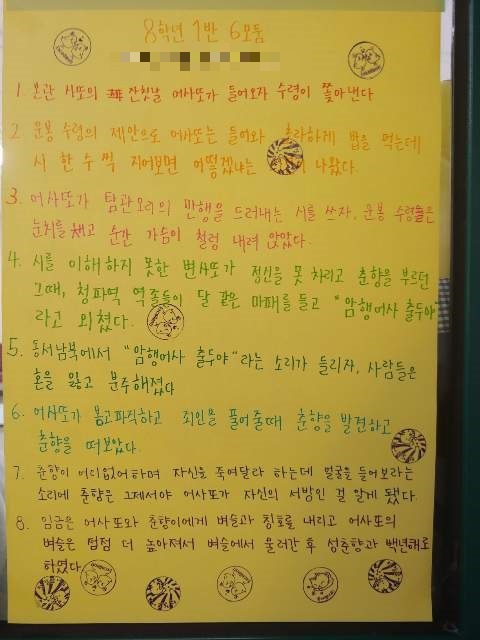 8학년 1반 6모둠
1. 본관 사또의 잔칫날 어사또가 들어오자 수령이 쫓아낸다
2. 운봉 수령의 제안으로 어사또는 들어와 초라하게 밥을 먹는데
시 한 수 씩 지어보면 어떻겠냐는 나왔다.
3. 어사또가 탐관오리의 만행을 드러내는 시를 쓰자, 운봉 수령은
눈치를 채고 순간 가슴이 철렁 내려 앉았다.
4. 시를 이해하지 못한 변사또가 정신을 못 차리고 춘향을 부르던
그때, 청파역 역졸들이 달 같은 마패를 들고 "암행어사 출두야"
라고 외쳤다.
5. 동서남북에서 "암행어사 출두야"라는 소리가 들리자, 사람들은
혼을 잃고 분주해졌다
6. 어사또가 봉고파직하고 죄인을 풀어줄때 춘향을 발견하고
춘향을 떠보았다
7. 춘향이 어디없어하며 자신을 죽여달라 하는데 얼굴을 들어보라는
소리에 춘향은 그제서야 어사또가 자신의 서방인 걸 알게 됐다.
8. 임금은 어사또와 춘향이에게 벼슬과 칭호를 내리고 어사또의
벼슬은 점점 더 높아져서 벼슬에서 물러간 후 성춘향과 백년해로
하였다.